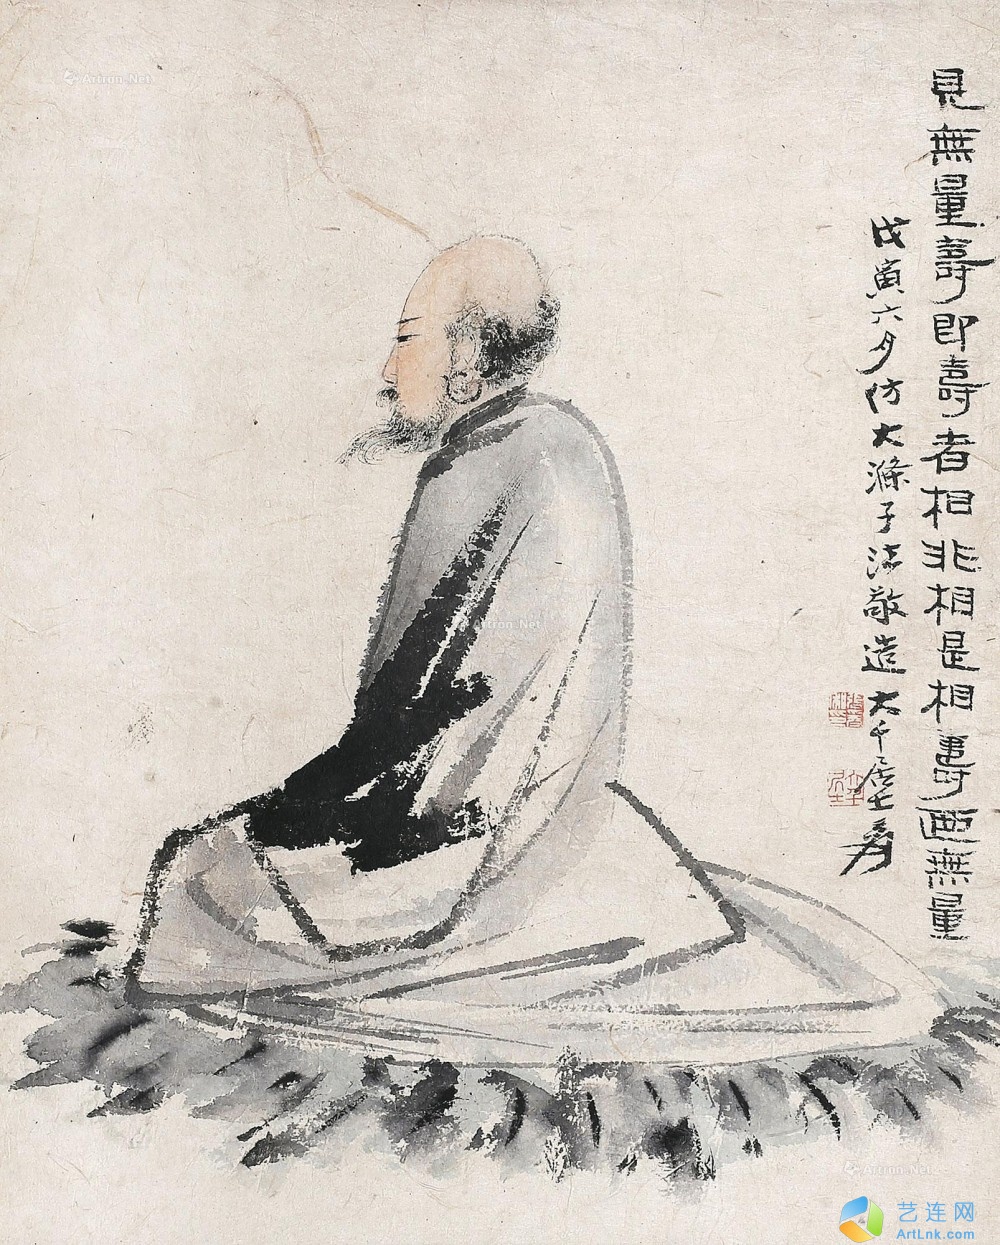 見無量壽即壽者相非相是相壽無量
戊寅六月仿大滌子法敬造 大千居士爰
Artron.Net
Artron.Net
Artron.Net
艺连网
ArtLnk.com